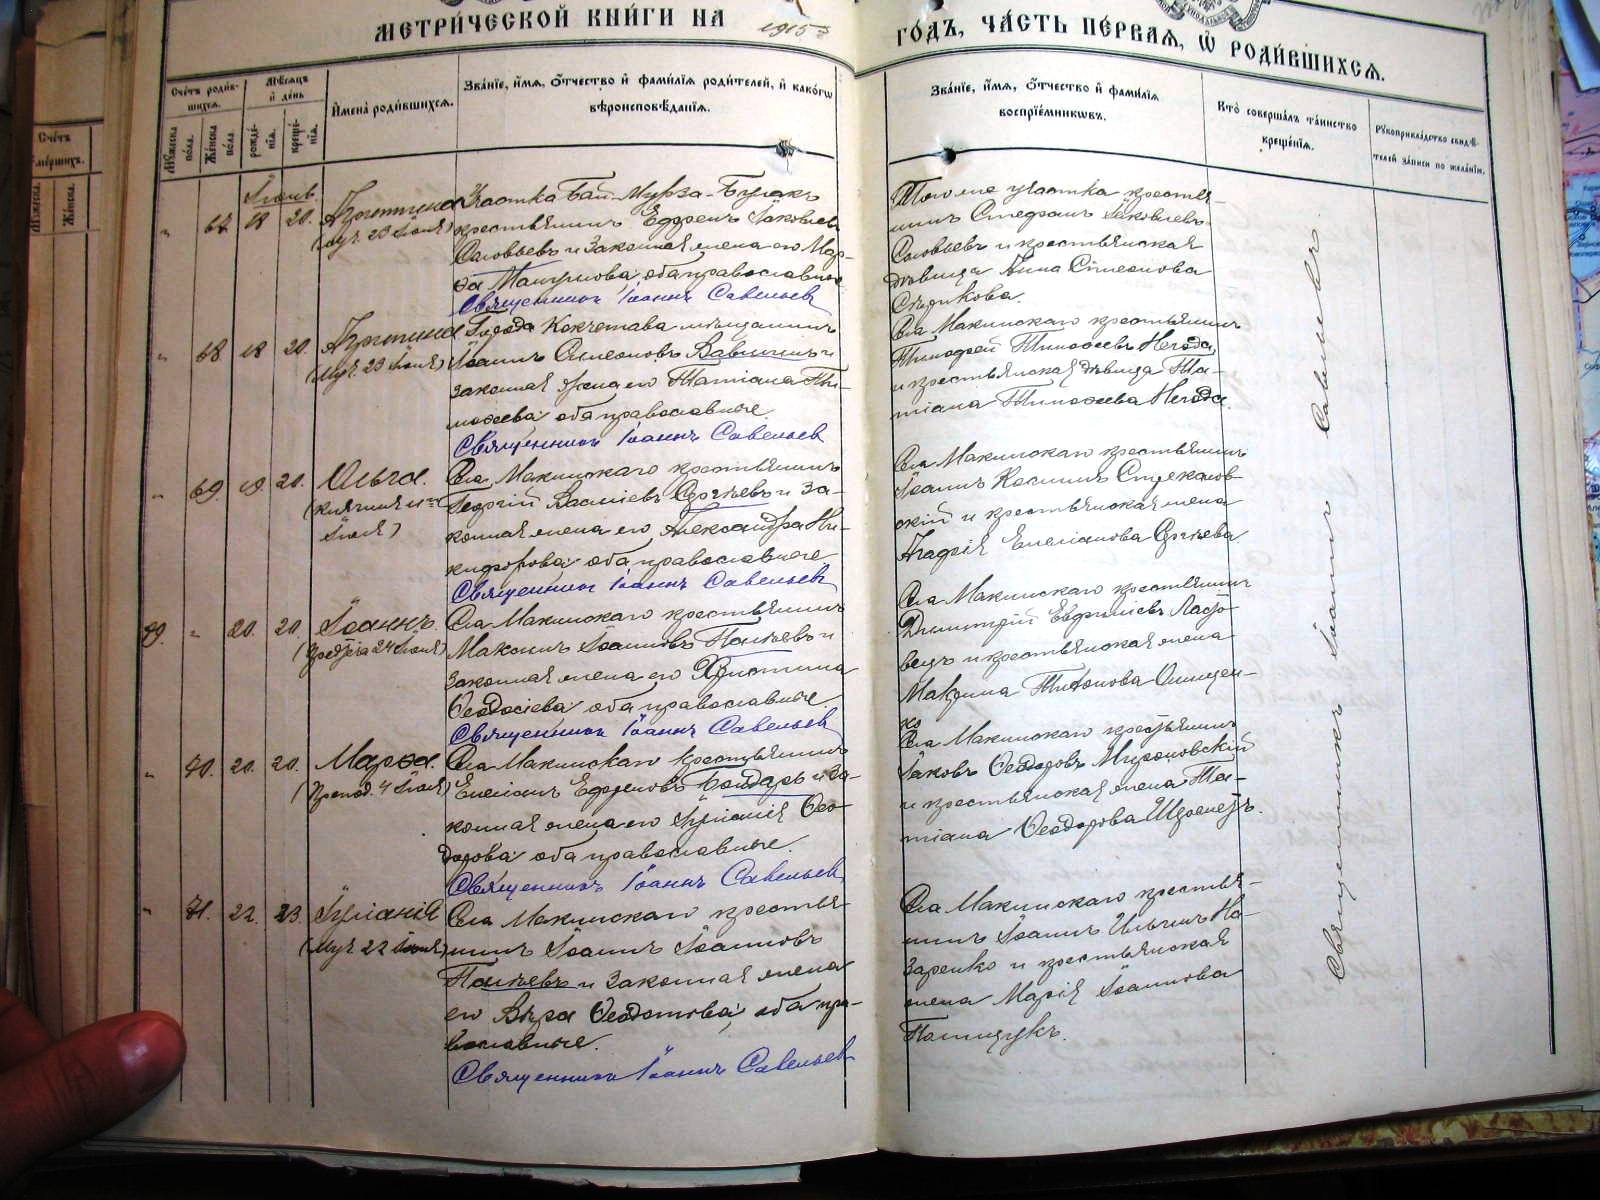 МЕТРИ́ЧЕСКОЙ КНИ́ГИ НА 1915 ГО́ДЪ, ЧА́СТЬ ПЕ́РВАЯ, Ѡ РОДИ́ВШИХСЯ.
Сче́тъ роди́в-
шихся.
Му́жеска по́ла.
Же́нска по́ла.
Мѣ́сяцъ
и де́нь
рожде́-
нія.
креще́-
нія.
Имена̀ роди́вшихся.
Зва́ніе, и́мя, о́тчество и фами́лія роди́телей, и како́гѡ
вѣроисповѣ́данія.
Зва́ніе, и́мя, о́тчество и фами́лія
воспріе́мникѡвъ.
Кто̀ соверша́лъ та́инство
креще́нія.
Рꙋкоприкла́дство свидѣ́-
телей за́писи по жела́нію.
Сче́тъ
уме́ршихъ.
Му́жеска.
Же́нска.
Іюнь
" 67 18 20. Агриппина
(муч. 23 Іюня)
Участка Бай-Мурза-Булакъ
крестьянинъ Ефремъ Іаковлевъ
Соловьевъ и законная жена его Мар-
ѳа, оба православные
Священникъ Іоаннъ Савельевъ
Того же участка кресть-
янинъ Стефанъ Іаковлевъ
Соловьевъ и крестьянская
дѣвица Анна Симеонова
" 68 18 20. Агриппина
(муч. 23 Іюня)
Города Кокчетава мѣщанинъ
Іоаннъ Симеоновъ Вавилинъ и
законная жена его Татіана Ти-
моѳеева, оба православные.
Священникъ Іоаннъ Савельевъ
Села Макинскаго крестьянинъ
Тимофей Тимоѳеевъ Негода,
и крестьянская дѣвица Та-
тіана Тимоѳеева Негода.
" 69. 19. 20. Ольга.
(княгиня 11го
Іюля)
Села Макинскаго крестьянинъ
Георгій Василіевъ Сергѣевъ и за-
конная жена его Александра Ни-
кифорова, оба православные
Священникъ Іоаннъ Савельевъ
Села Макинскаго крестьянинъ
Іоаннъ Косминъ Стукалов-
скій и крестьянская жена
Агафія Емеліанова Сергѣева
79. " 20. 20. Іоаннъ.
(Предтеча 24 Іюня)
Села Макинскаго крестьянинъ
Максимъ Іоанновъ Полѣевъ и
законная жена его Христина
Ѳеодосіева, оба православные.
Священникъ Іоаннъ Савельевъ
Села Макинскаго крестьянинъ
Димитрій Евфиміевъ Ладо-
вецъ и крестьянская жена
Макрина Тихонова Онищен-
ко
" 70. 20. 20. Марѳа.
(препод. 4 Іюля)
Села Макинскаго крестьянинъ
Емеліанъ Ефремовъ Бондарь и за-
конная жена его Іуліанія Ѳео-
дорова, оба православные.
Священникъ Іоаннъ Савельевъ
Села Макинскаго крестьянинъ
Іаковъ Ѳеодоровъ Мироновскій
и крестьянская жена Та-
тіана Ѳеодорова
" 71. 22. 23. Іуліанія
(муч. 22 Іюня)
Села Макинскаго кресть-
янинъ Іоаннъ Іоанновъ
Полѣевъ и законная жена
его Вѣра Ѳеодотова, оба пра-
вославные.
Священникъ Іоаннъ Савельевъ
Села Макинскаго кресть-
янинъ Іоаннъ Ильинъ На-
заренко и крестьянская
жена Марія Іоаннова
Полищукъ.
Священникъ Іоаннъ Савельевъ